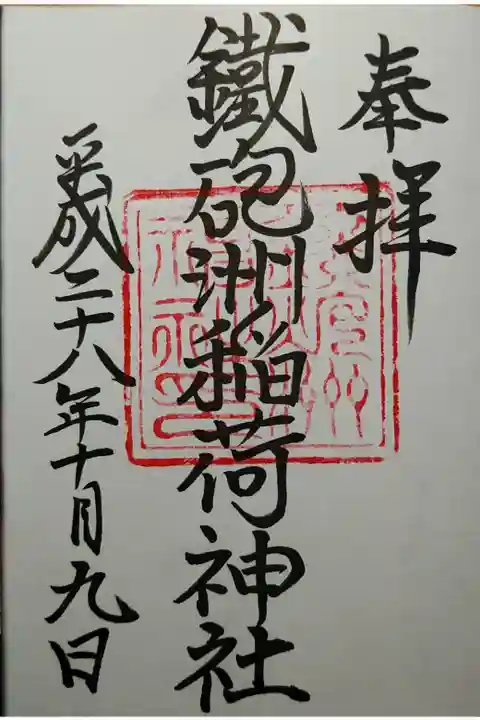 奉拝
鐵砲洲稲荷神社
平成二十八年十月九日